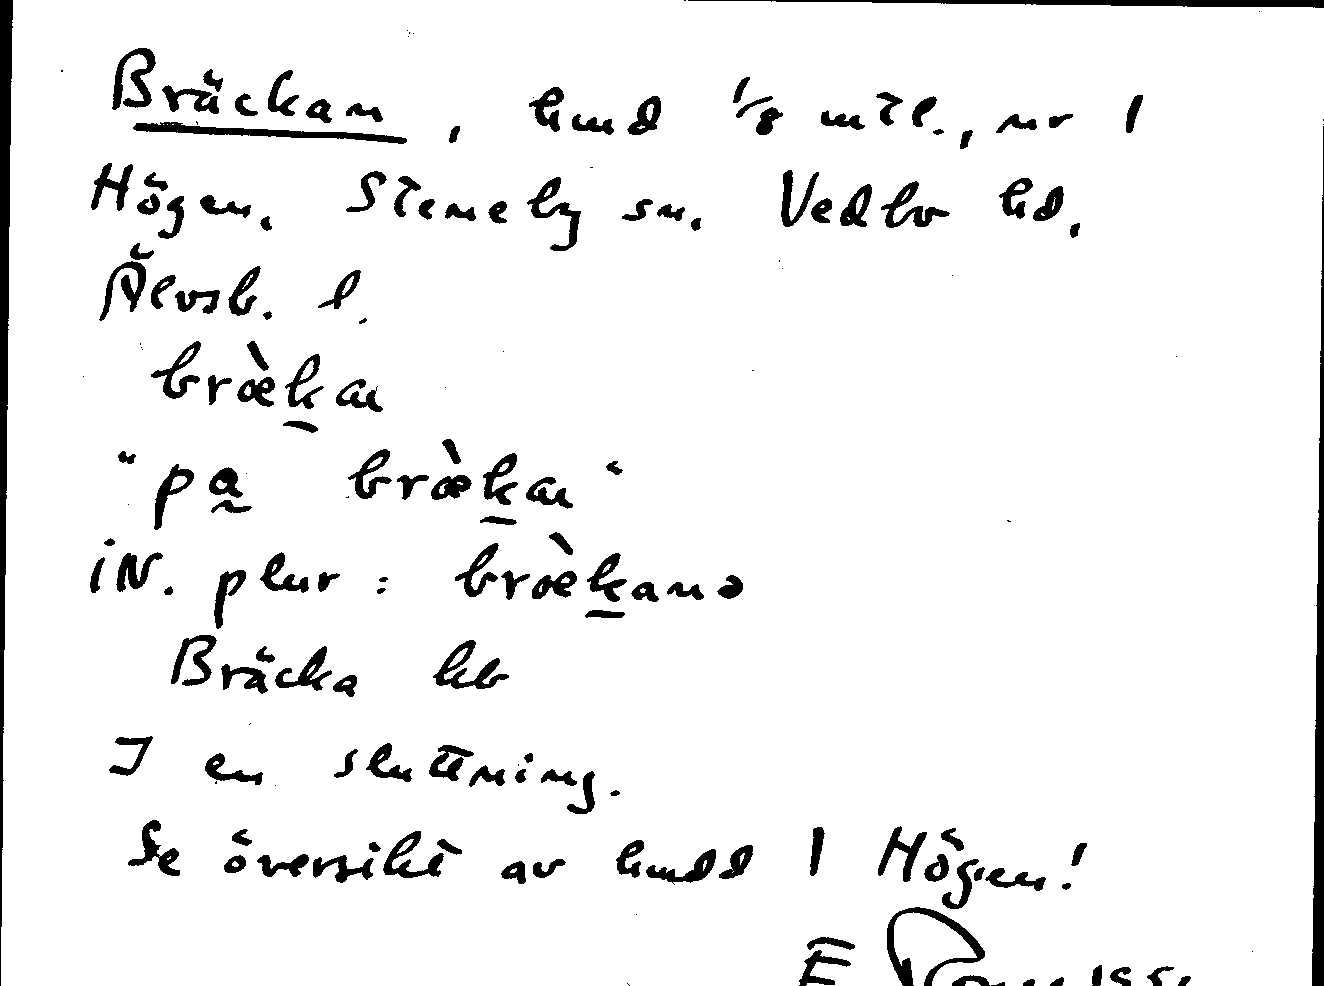 Bräckan, hmd 1/8 mtl., nr 1
Högen. Steneby sn. Vedbo hd.
Älvsb. l.
bræ̀k̠an
"pa̰ bræ̀k̠an"
iN. plur: bræ̀k̠anə
Bräcka kb
I en sluttning.
Se översikt av hmdd 1 Högen!
E